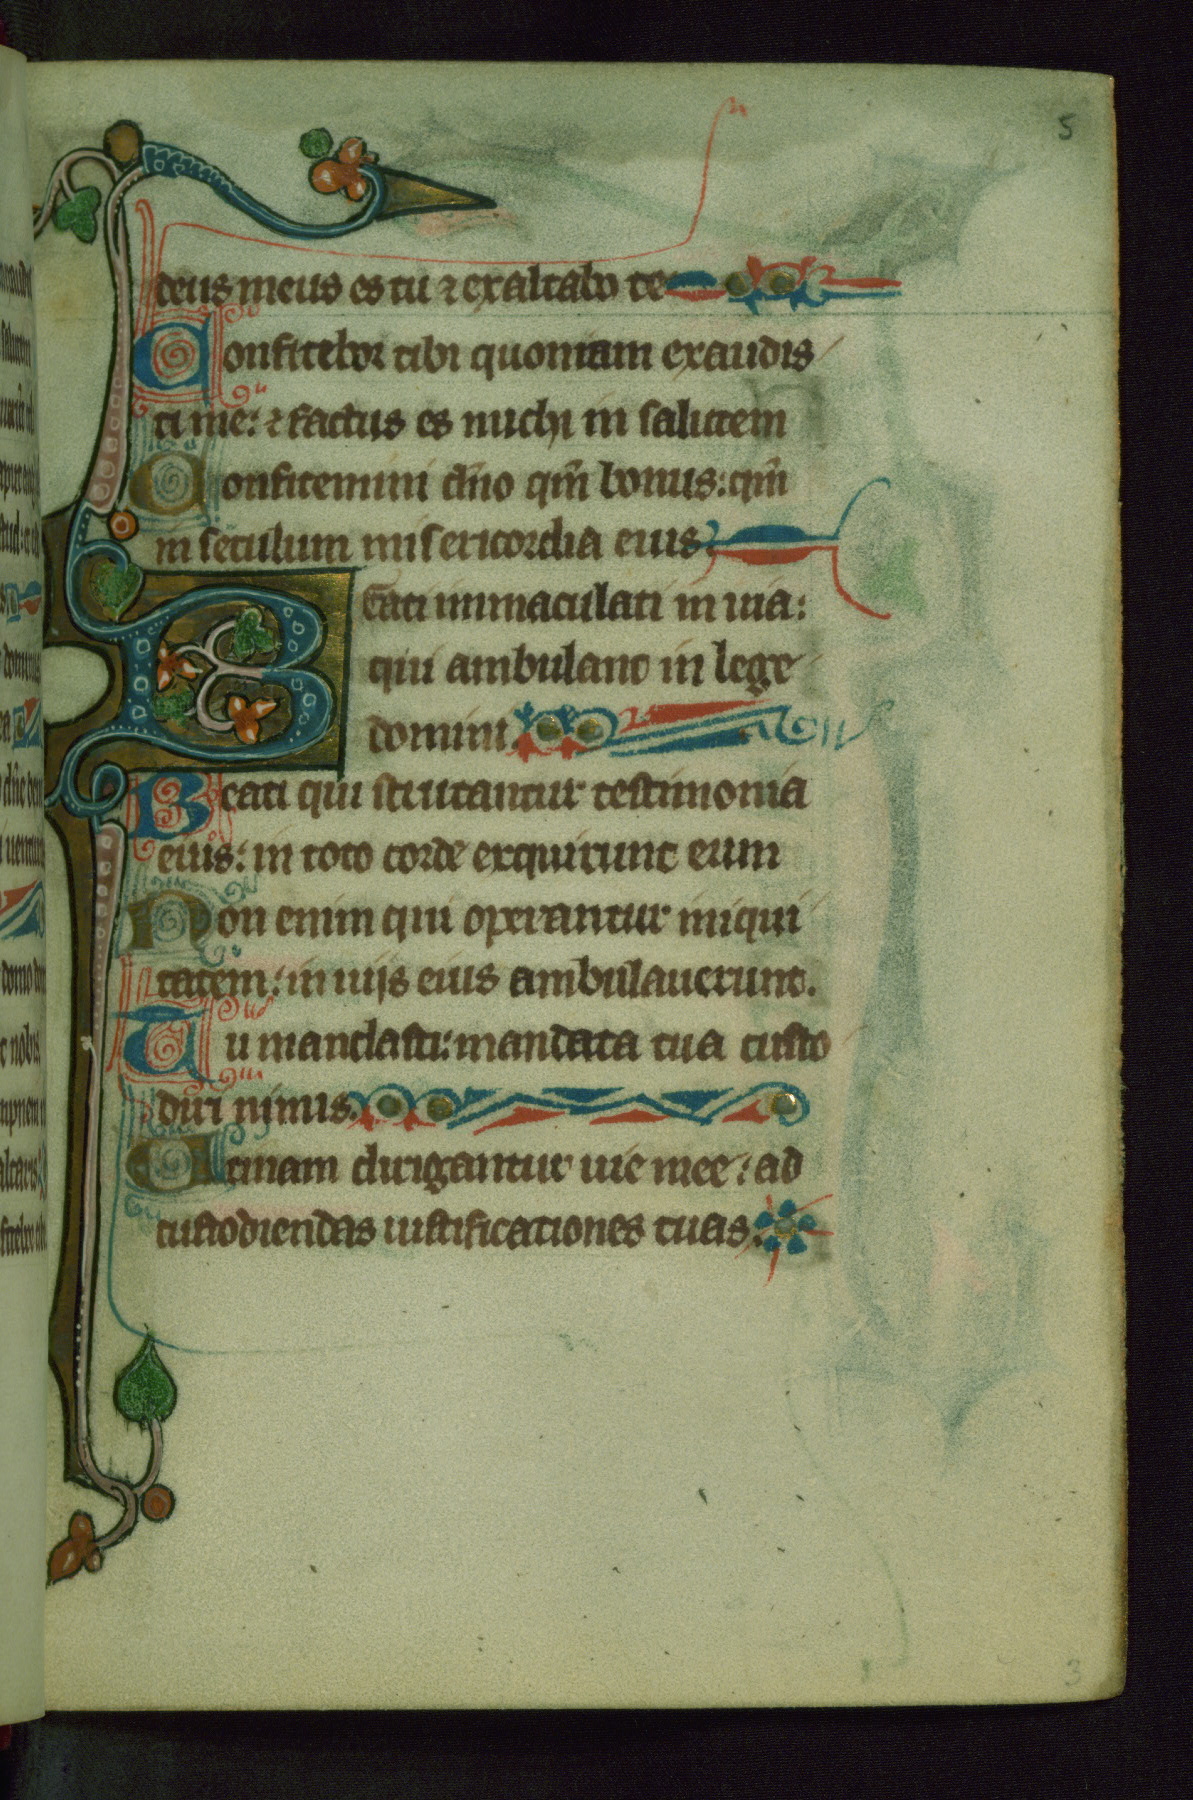 5
deus meus es tu ⁊ exaltabo te
Confitebor tibi quoniam exaudis
ti me: ⁊ factus es michi in salutem
Confitemini dn̄o qm̄ bonus: qm̄
in seculum misericordia eius
Beati immaculati in uia:
qui ambulant in lege
domini.
Beati qui scrutantur testimonia
eius: in toto corde exquirunt eum
Non enim qui operantur iniqui
tatem: in uijs eius ambulauerunt.
Tu mandasti: mandata tua custo
diri nimis.
Utinam dirigantur uie mee: ad
custodiendas iustificationes tuas.
3